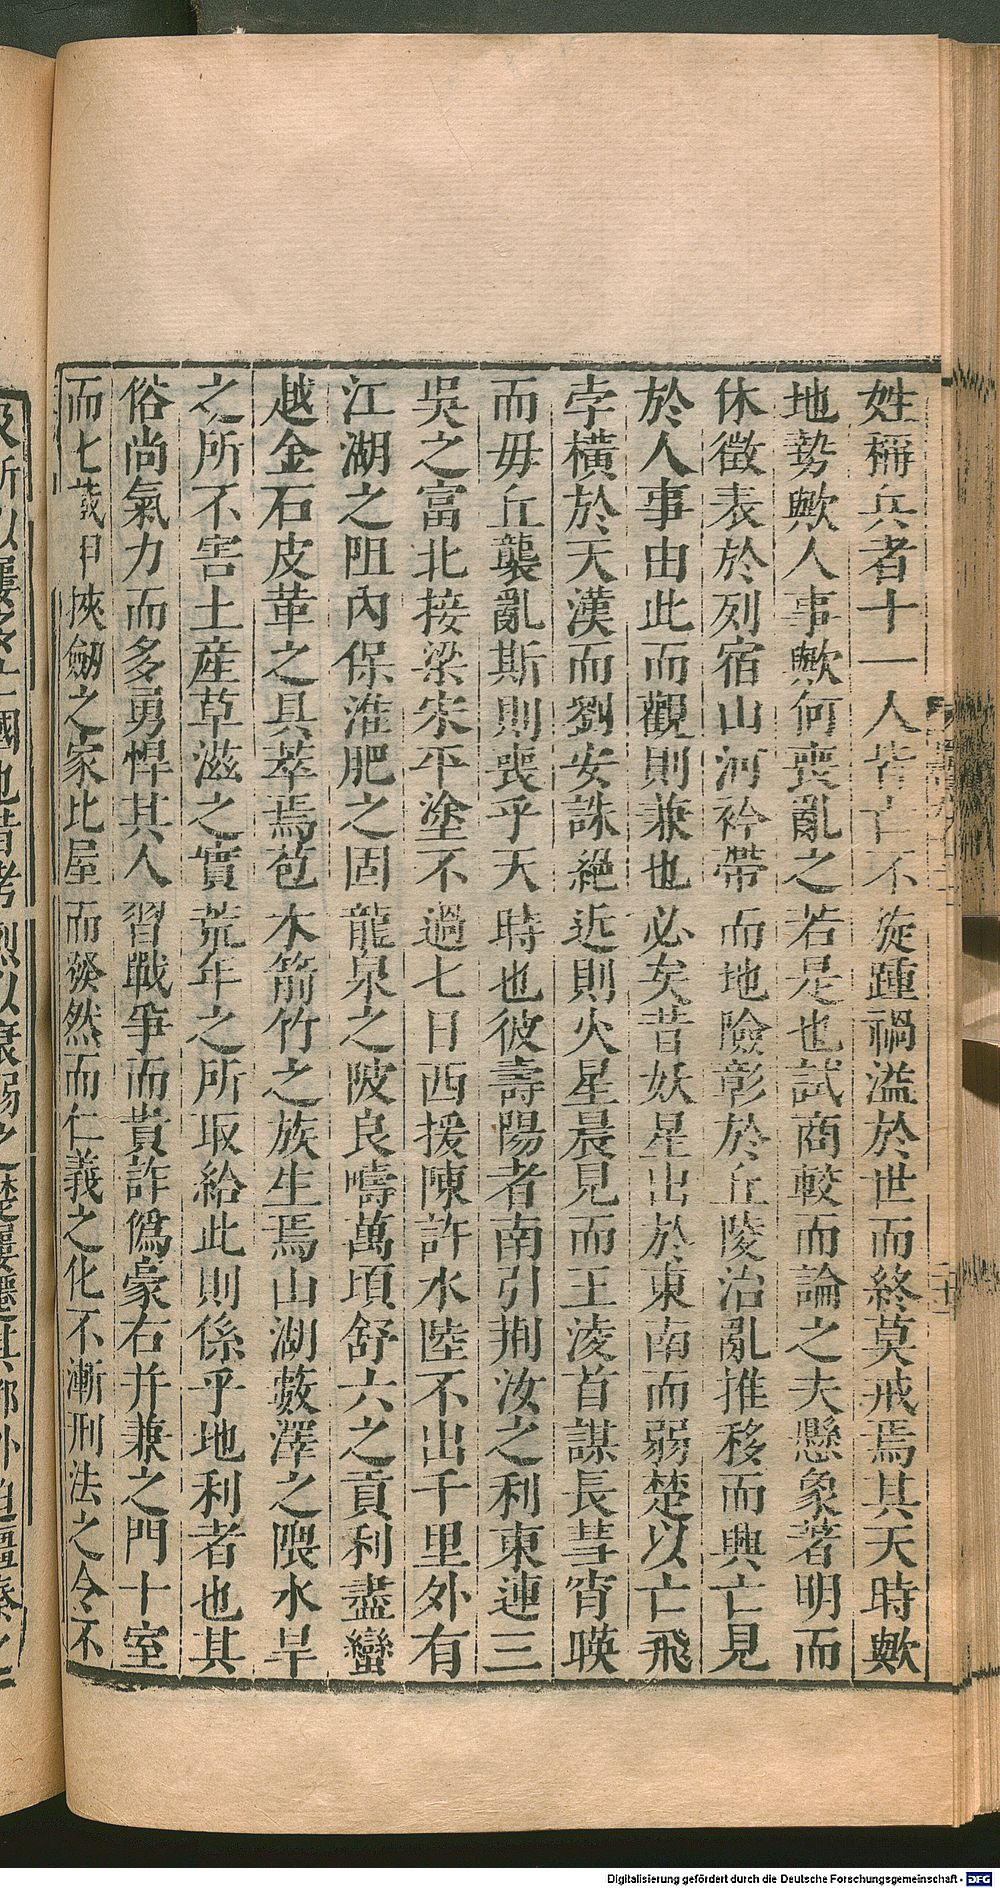 姓稱兵者十一人皆亡不旋踵禍溢於世而終莫戒焉其天時歟
地勢歟人事歟何喪亂之若是也試商較而論之夫懸象著明而
休徵表於列宿山河衿帶而地險彰於丘陵治亂推移而興亡見
於人事由此而觀則兼也必矣昔妖星出於東南而弱楚以亡飛
孛橫於天漢而劉安誅絕近則火星晨見而王淩首謀長彗宵暎
而毋丘襲亂斯則喪乎天時也彼壽陽者南引荆汝之利東連三
吳之富北接梁宋平塗不過七日西援陳許水陸不出千里外有
江湖之阻內保淮肥之固龍泉之陂良疇萬頃舒六之貢利盡蠻
越金石皮革之具萃焉苞木箭竹之族生焉山湖藪澤之隈水旱
之所不害土産草滋之實荒年之所取給此則係乎地利者也其
俗尚氣力而多勇悍其人習戰爭而貴詐僞豪右并兼之門十室
而七藏甲挾劒之家比屋而發然而仁義之化不漸刑法之令不
所以屢 國也昔考烈以衰弱之楚屢遷其都外迫彊秦之
Digitalisierung gefördert durch die Deutsche Forschungsgemeinschaft - DFG